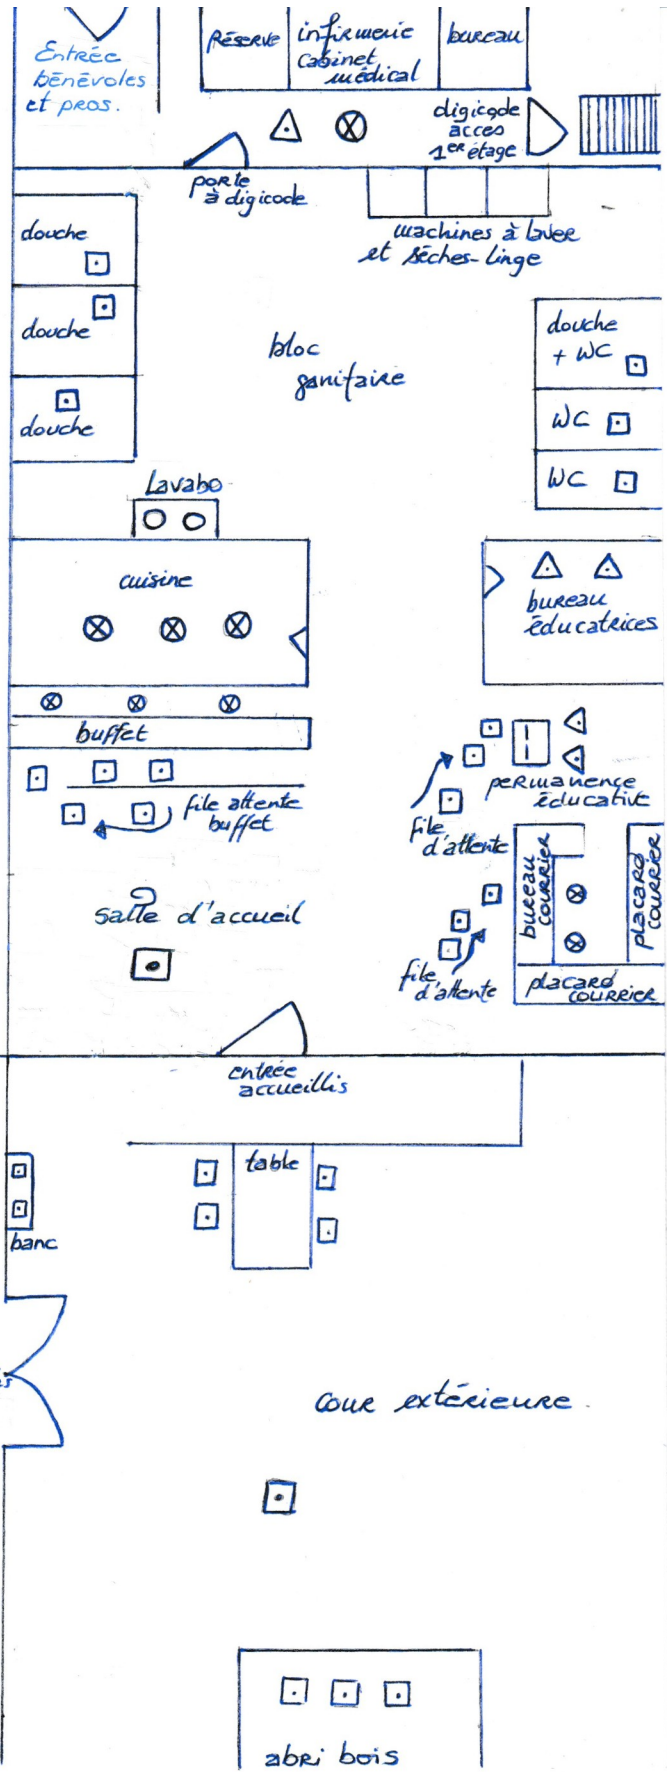 Entrée
bénévoles
et pros.
Réserve
infirmerie
cabinet
médical
bureau
digicode
acces
1er étage
porte
à digicode
machines à laver
et sèches-linge
douche
douche
douche
bloc
sanitaire
douche
+ WC
WC
WC
Lavabo
cuisine
bureau
éducatrices
buffet
file attente
buffet
permanence
éducative
file
d'attente
bureau
courrier
placard
courrier
salle d'accueil
file
d'attente
placard
courrier
entrée
accueillis
table
banc
cour extérieure.
abri bois